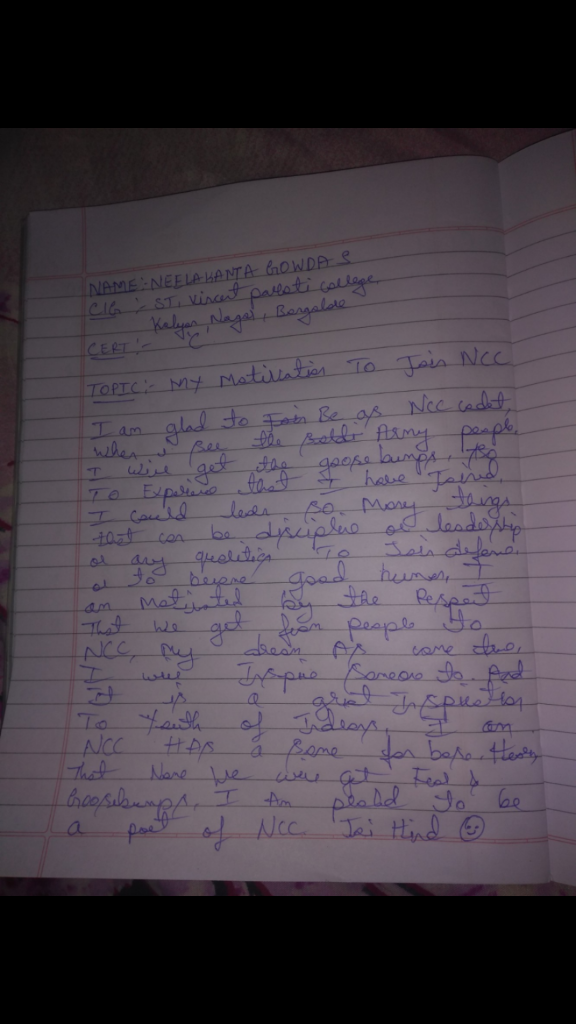 NAME:- NEELAKANTA GOWDA S
CIG :- ST. Vincent palloti college,
Kalyan Nagar, Bangalore
CERT:- 'C'
TOPIC:- MY Motivation To Join NCC
I am glad to Join Be as NCC cadet,
when i see the soldi Army people,
I will get the goosebumps, So
To Expirince that I have Joined,
I could learn so Many things
that can be discipline or leadership
or any qualities To Join defence.
or to become good human, I
am Motivated by the Respect
That we get from people to
NCC, My dream As come true,
I will Inspire someone to And
It is a great Inspiration
To Youth of Indians, I am
NCC HAS a some for base.
That Name We will get Feel &
Goosebumps, I Am proud to be
a part of NCC Jai Hind ☺